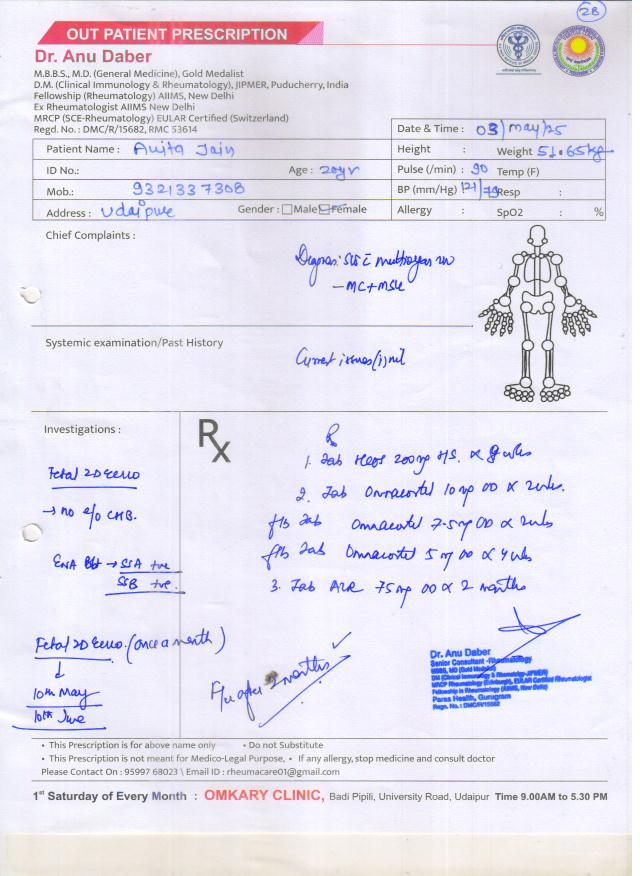 28
OUT PATIENT PRESCRIPTION
Dr. Anu Daber
M.B.B.S., M.D. (General Medicine), Gold Medalist
D.M. (Clinical Immunology & Rheumatology), JIPMER, Puducherry, India
Fellowship (Rheumatology) AIIMS, New Delhi
Ex Rheumatologist AIIMS New Delhi
MRCP (SCE-Rheumatology) EULAR Certified (Switzerland)
Regd. No. : DMC/R/15682, RMC 53614
Date & Time : 03/May/25
Patient Name : Anita Jain
Height : Weight 51.65kg
ID No. : Age : 20yr
Pulse (/min) : 90 Temp (F)
Mob.: 9321337308
BP (mm/Hg) 121/79 Resp :
Address : Udaipur Gender : Male Female
Allergy : SpO2 : %
Chief Complaints :
- MC + MSK
Systemic examination/Past History
Current issues (i) nil
Investigations :
Rx
Rx
1. Tab HCQS 200mg H/S. x 8 wks
Fetal 2D Echo
2. Tab Omnacortil 10 mg OD x 2 wks.
→ no e/o CHB.
f/b Tab Omnacortil 7.5 mg OD x 2 wks
ENA Blot → SSA +ve
f/b Tab Omnacortil 5 mg OD x 4 wks
SSB +ve.
3. Tab 75 mg OD x 2 months
Fetal 2D Echo. (once a month)
10th May
10th June
F/u after 2 months
Dr. Anu Daber
Senior Consultant -Rheumatology
MBBS, MD (Gold Medalist)
DM (Clinical Immunology & Rheumatology-JIPMER)
MRCP Rheumatology (Edinburgh), EULAR Certified Rheumatologist
Fellowship in Rheumatology (AIIMS, New Delhi)
Paras Health, Gurugram
Regn. No. : DMC/R/15682
• This Prescription is for above name only • Do not Substitute
• This Prescription is not meant for Medico-Legal Purpose, • If any allergy, stop medicine and consult doctor
Please Contact On : 95997 68023 \ Email ID : rheumacare01@gmail.com
1st Saturday of Every Month : OMKARY CLINIC, Badi Pipili, University Road, Udaipur Time 9.00AM to 5.30 PM